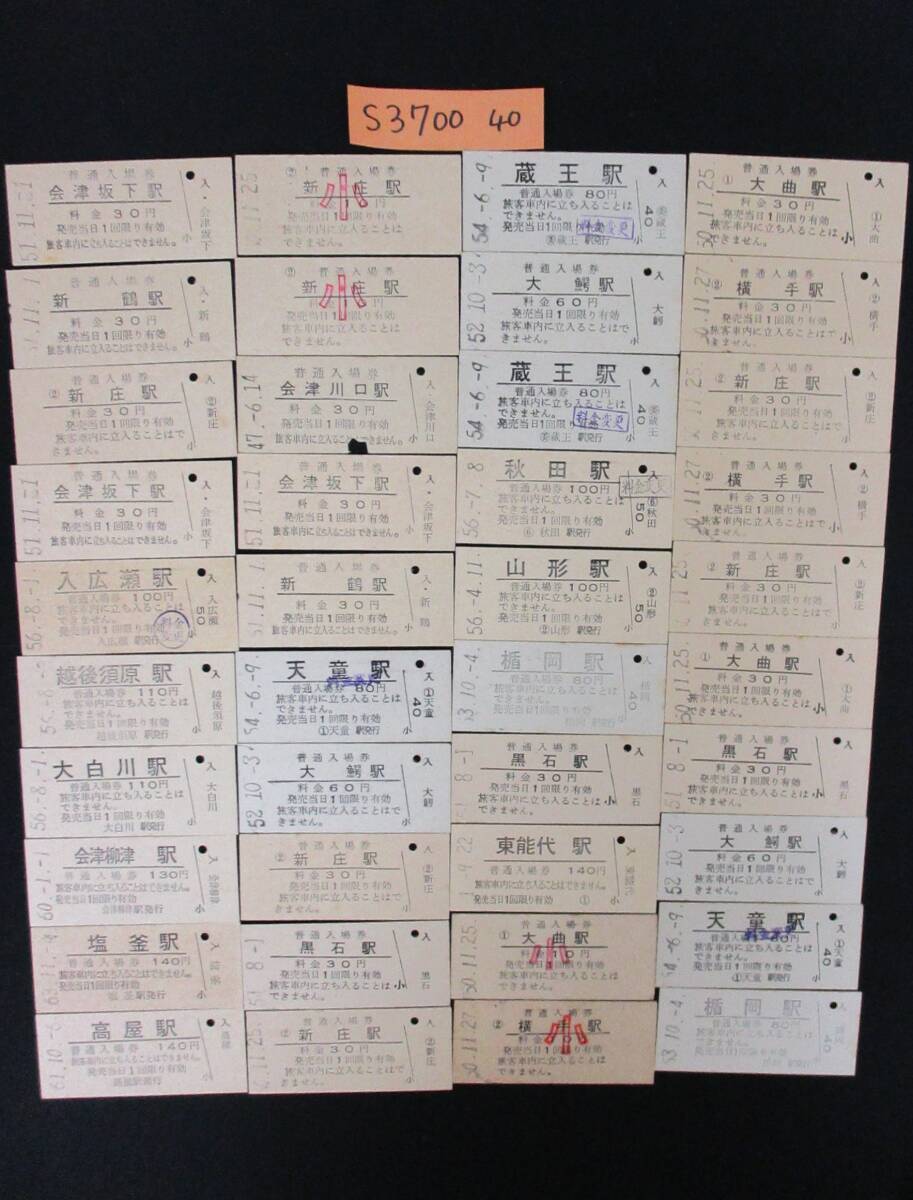 S3700 40
51.11.-1
普通入場券
会津坂下駅
料金30円
発売当日1回限り有効
旅客車内に立ち入ることはできません。
小
入・会津坂下
11.25
② 普通入場券
新庄駅
小
発売当日1回限り有効
旅客車内に立入ることはできません。
54.-6.-9
蔵王駅
普通入場券 80円
旅客車内に立ち入ることは
できません。
発売当日1回限り
料金変更
蔵王 駅発行
小
入
40
蔵王
50.11.25
普通入場券
① 大曲駅
料金30円
発売当日1回限り有効
旅客車内に立入ることは
できません。
小
入
①大曲
11.1
普通入場券
新鶴駅
料金30円
発売当日1回限り有効
旅客車内に立入ることはできません。
小
入・新鶴
② 普通入場券
新庄駅
小
発売当日1回限り有効
旅客車内に立入ることはできません。
52.10.-3
普通入場券
大鰐駅
料金60円
発売当日1回限り有効
旅客車内に立ち入ることはで
きません。
小
入
大鰐
11.27
普通入場券
② 横手駅
料金30円
発売当日1回限り有効
旅客車内に立入ることは
できません。
小
入
②横手
普通入場券
② 新庄駅
料金30円
発売当日1回限り有効
旅客車内に立入ることは
できません。
小
入
②新庄
47.-6.14
普通入場券
会津川口駅
料金30円
発売当日1回限り有効
旅客車内に立入ることはできません。
小
入・会津川口
54.-6.-9
蔵王駅
普通入場券 80円
旅客車内に立ち入ることは
できません。
発売当日1回限り
料金変更
蔵王 駅発行
小
入
40
蔵王
11.25
普通入場券
② 新庄駅
料金30円
発売当日1回限り有効
旅客車内に立入ることは
できません。
小
入
②新庄
51.11.-1
普通入場券
会津坂下駅
料金30円
発売当日1回限り有効
旅客車内に立入ることはできません。
小
入・会津坂下
51.11.-1
普通入場券
会津坂下駅
料金30円
発売当日1回限り有効
旅客車内に立入ることはできません。
小
入・会津坂下
56.-7.-8
秋田駅
普通入場券 100円
旅客車内に立ち入ることは
できません。
発売当日1回限り有効
⑥ 秋田 駅発行
小
料金変更
50
⑥秋田
11.27
普通入場券
② 横手駅
料金30円
発売当日1回限り有効
旅客車内に立入ることは
できません。
小
入
②横手
56.-8.-1
入広瀬駅
普通入場券 100円
旅客車内に立ち入ることは
できません。
発売当日1回限り有効
入広瀬 駅発行
料金変更
小
入
入広瀬
50
11.1
普通入場券
新鶴駅
料金30円
発売当日1回限り有効
旅客車内に立入ることはできません。
小
入・新鶴
56.-4.11
山形駅
普通入場券 100円
旅客車内に立ち入ることは
できません。
発売当日1回限り有効
②山形 駅発行
小
入
②山形
50
11.25
普通入場券
② 新庄駅
料金30円
発売当日1回限り有効
旅客車内に立入ることは
できません。
小
入
②新庄
越後須原駅
普通入場券 110円
旅客車内に立ち入ることは
できません。
発売当日1回限り有効
越後須原 駅発行
小
入
越後須原
54.-6.-9
天童駅
普通入場券 80円
旅客車内に立ち入ることは
できません。
発売当日1回限り有効
①天童 駅発行
小
入
①天童
40
53.10.-4
楯岡駅
普通入場券 80円
旅客車内に立ち入ることは
できません。
発売当日1回限り有効
楯岡 駅発行
小
入
楯岡
40
50.11.25
普通入場券
① 大曲駅
料金30円
発売当日1回限り有効
旅客車内に立入ることは
できません。
小
入
①大曲
56.-8.-1
大白川駅
普通入場券 110円
旅客車内に立ち入ることは
できません。
発売当日1回限り有効
大白川 駅発行
小
入
大白川
52.10.-3
普通入場券
大鰐駅
料金60円
発売当日1回限り有効
旅客車内に立ち入ることはで
きません。
小
入
大鰐
51.-8.-1
普通入場券
黒石駅
料金30円
発売当日1回限り有効
旅客車内に立入ることは
できません。
小
入
黒石
51.-8.-1
普通入場券
黒石駅
料金30円
発売当日1回限り有効
旅客車内に立入ることは
できません。
小
入
黒石
60.-1.-1
会津柳津駅
普通入場券 130円
旅客車内に立ち入ることはできません。
発売当日1回限り有効
会津柳津駅発行
小
入
会津柳津
普通入場券
② 新庄駅
料金30円
発売当日1回限り有効
旅客車内に立入ることは
できません。
小
入
②新庄
-9.22
東能代駅
普通入場券 140円
旅客車内に立ち入ることはできません。
発売当日1回限り有効
①
小
入
東能代
52.10.-3
普通入場券
大鰐駅
料金60円
発売当日1回限り有効
旅客車内に立ち入ることはで
きません。
小
入
大鰐
塩釜駅
普通入場券 140円
旅客車内に立ち入ることはできません。
発売当日1回限り有効
塩釜駅発行
小
入
塩釜
51.-8.-1
普通入場券
黒石駅
料金30円
発売当日1回限り有効
旅客車内に立入ることは
できません。
小
入
黒石
50.11.25
普通入場券
① 大曲駅
小
料金10円
発売当日1回限り有効
旅客車内に立入ることは
できません。
54.-6.-9
天童駅
普通入場券 80円
旅客車内に立ち入ることは
できません。
発売当日1回限り有効
①天童 駅発行
小
入
①天童
40
高屋駅
普通入場券 140円
旅客車内に立ち入ることはできません。
発売当日1回限り有効
高屋駅発行
小
入
高屋
11.25
普通入場券
② 新庄駅
料金30円
発売当日1回限り有効
旅客車内に立入ることは
できません。
小
入
②新庄
50.11.27
普通入場券
② 横手駅
小
発売当日1回限り有効
旅客車内に立入ることは
できません。
53.10.-4
楯岡駅
普通入場券 80円
旅客車内に立ち入ることは
できません。
発売当日1回限り有効
楯岡 駅発行
入
楯岡
40